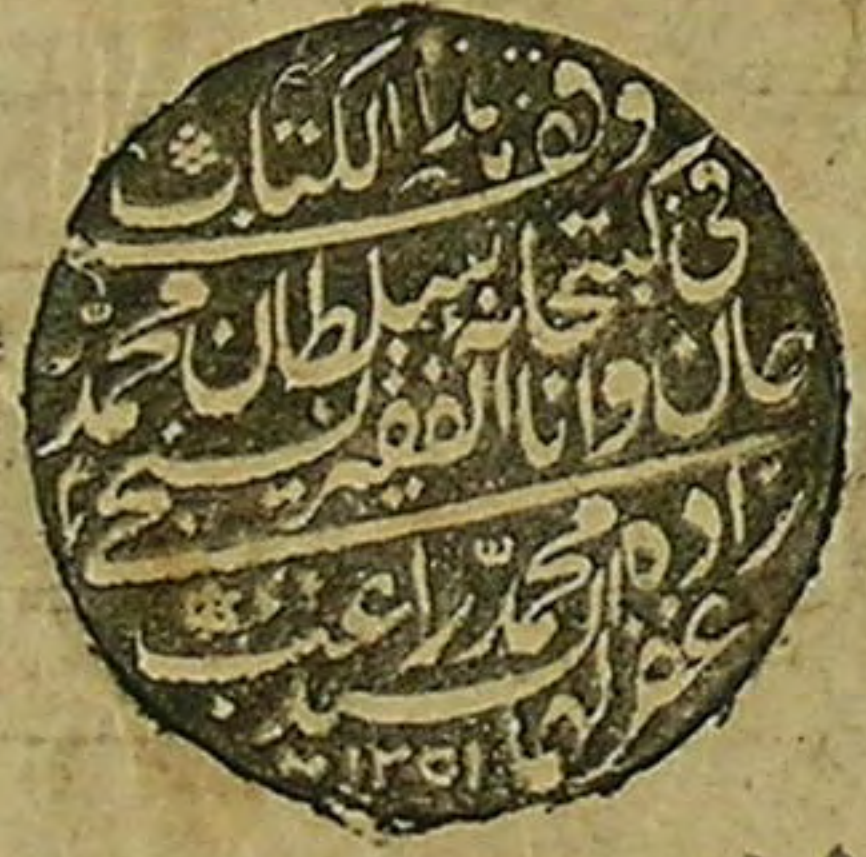 وقف هذا الكتاب
في كتبخانه سلطان محمد
خان وانا الفقير
زاده السيد محمد راغب
غفر لهما
١٢٥١